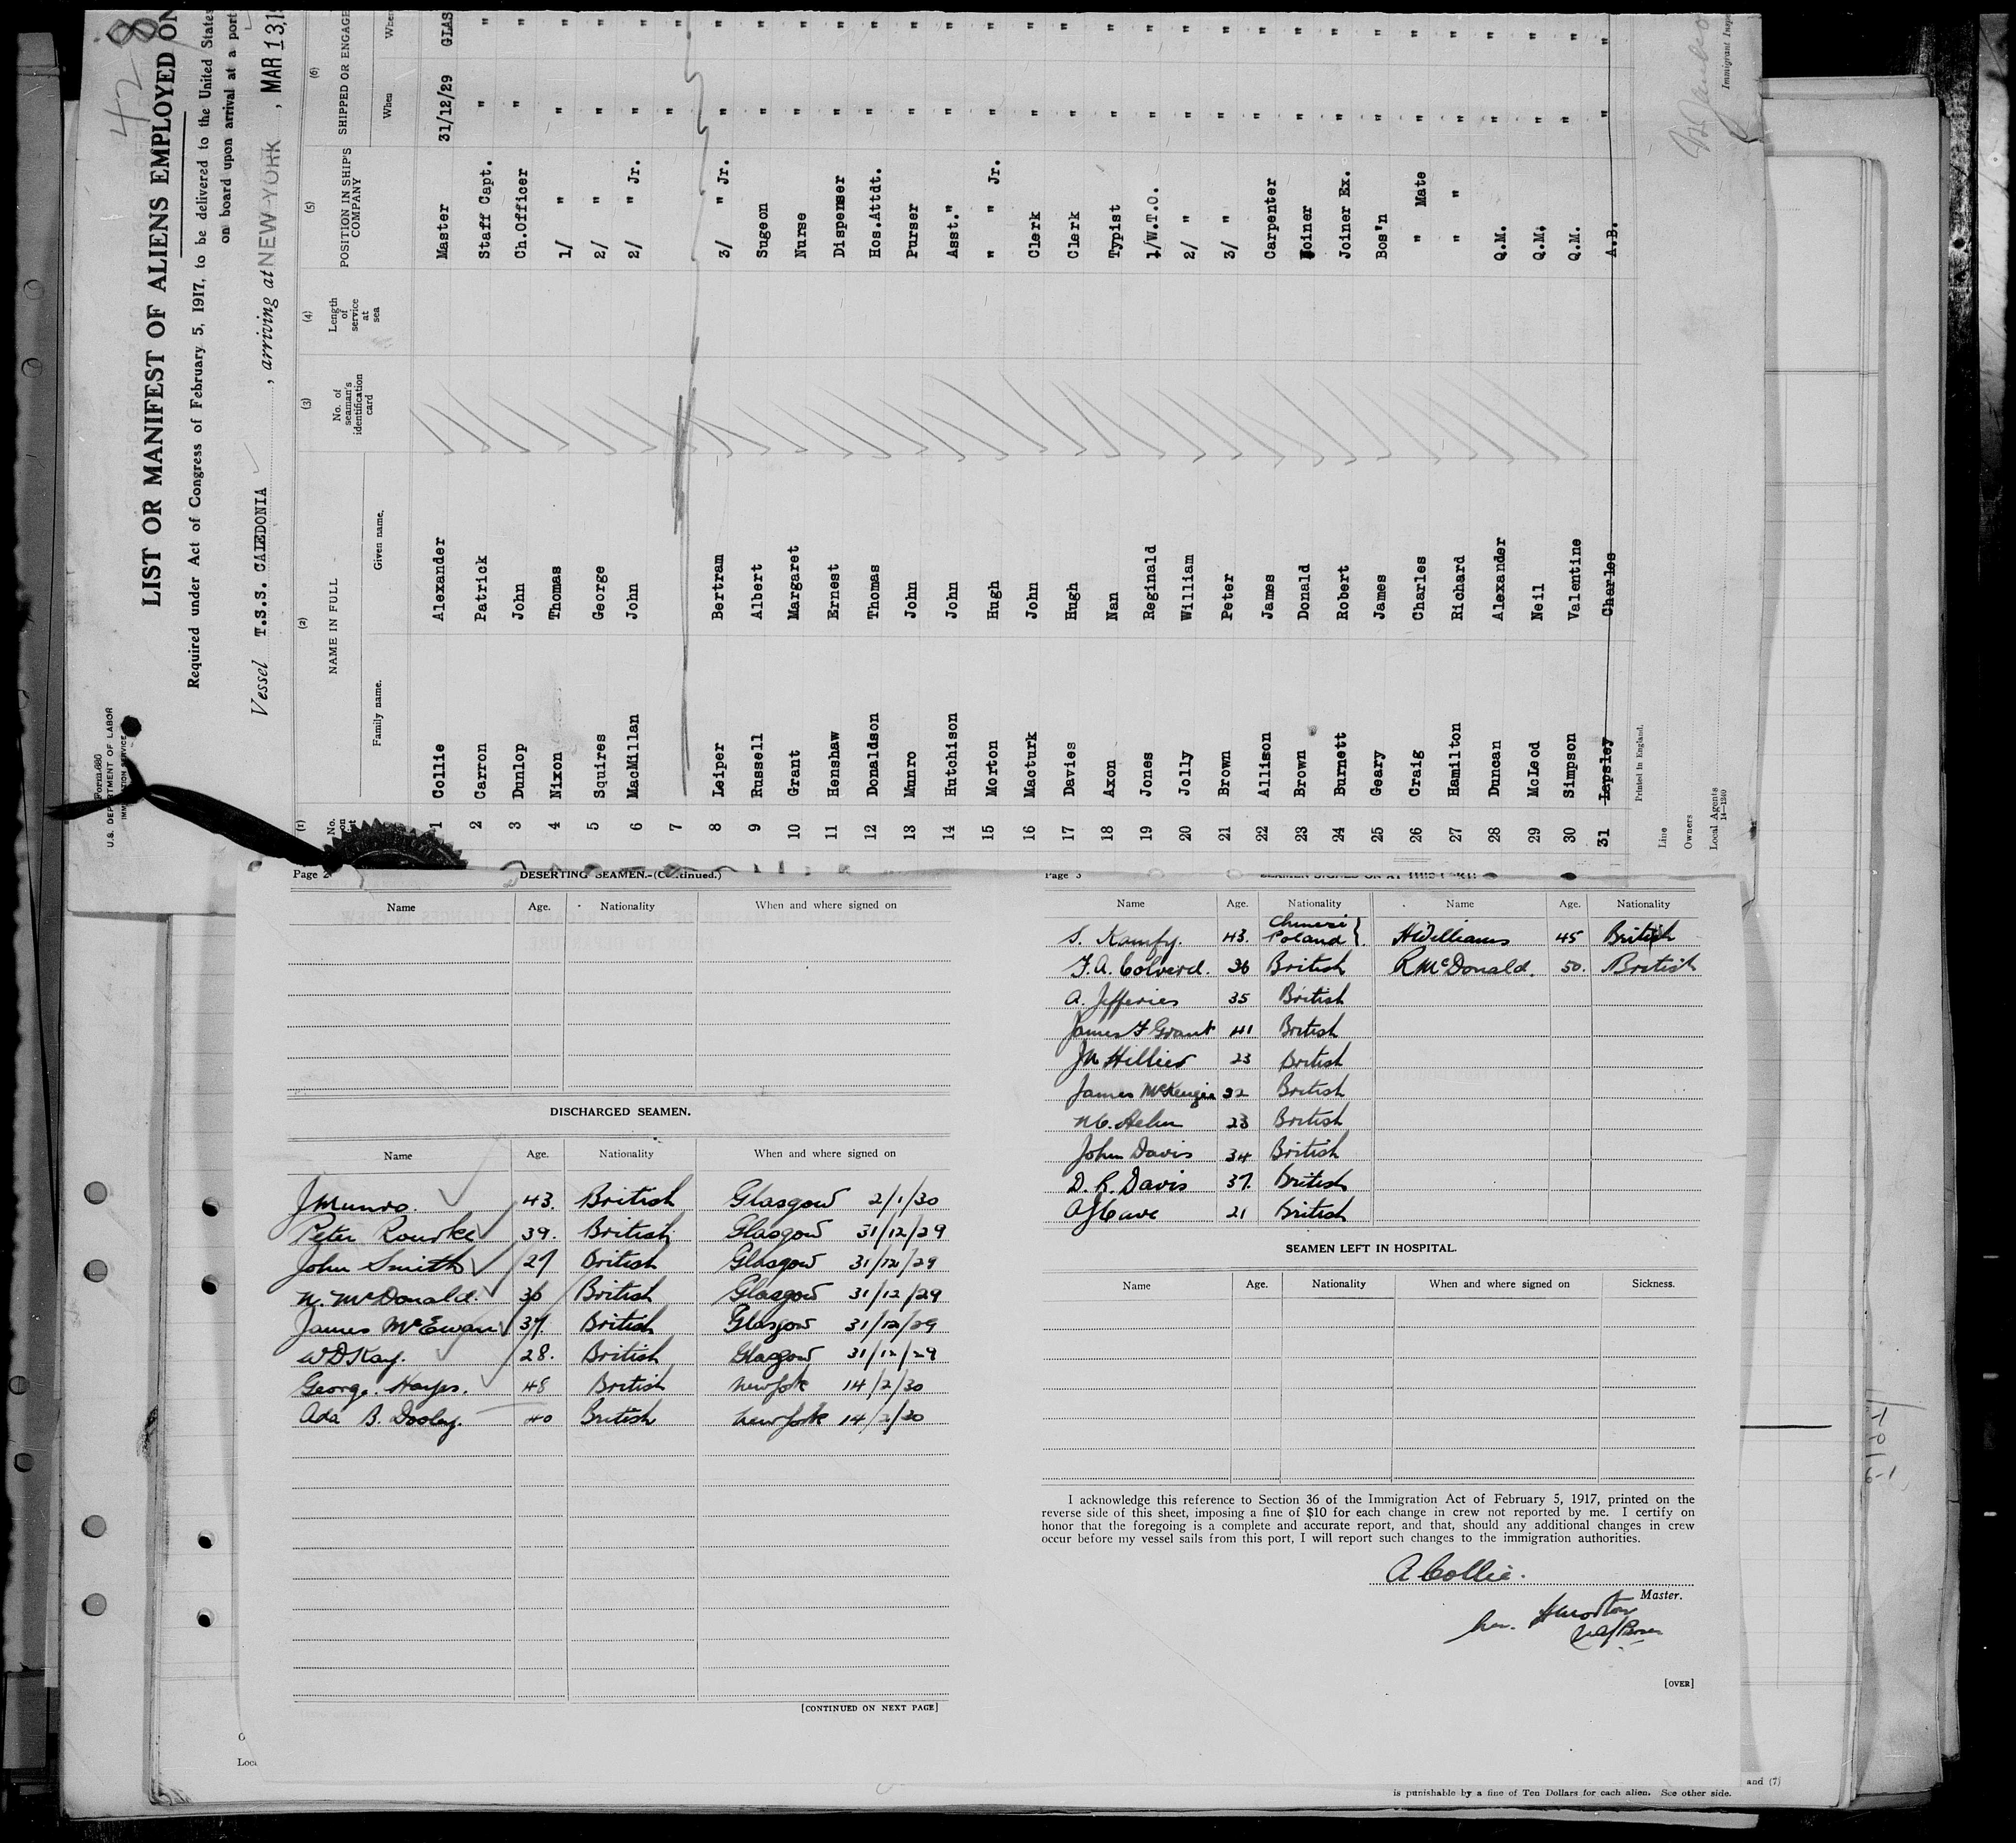 428
Form 680
U.S. DEPARTMENT OF LABOR
IMMIGRATION SERVICE
LIST OR MANIFEST OF ALIENS EMPLOYED ON
Required under Act of Congress of February 5, 1917, to be delivered to the United States
on board upon arrival at a port
Vessel T.S.S. CALEDONIA, arriving at NEW-YORK, MAR 13,1
(1) (2) (3) (4) (5) (6)
No. on NAME IN FULL No. of seaman's identification card Length of service at sea POSITION IN SHIP'S COMPANY SHIPPED OR ENGAGE
Family name. Given name. When Where
1 Collie Alexander Master 31/12/29 GLAS
2 Carron Patrick Staff Capt. " "
3 Dunlop John Ch.Officer " "
4 Nixon Thomas 1/ " " "
5 Squires George 2/ " " "
6 MacMillan John 2/ " Jr. " "
7 " "
8 Leiper Bertram 3/ " Jr. " "
9 Russell Albert Sugeon " "
10 Grant Margaret Nurse " "
11 Henshaw Ernest Dispenser " "
12 Donaldson Thomas Hos.Attdt. " "
13 Munro John Purser " "
14 Hutchison John Asst." " "
15 Morton Hugh " " Jr. " "
16 Macturk John Clerk " "
17 Davies Hugh Clerk " "
18 Axon Nan Typist " "
19 Jones Reginald 1/W.T.O. " "
20 Jolly William 2/ " " "
21 Brown Peter 3/ " " "
22 Allison James Carpenter " "
23 Brown Donald Joiner " "
24 Burnett Robert Joiner Ex. " "
25 Geary James Bos'n " "
26 Craig Charles " Mate " "
27 Hamilton Richard " " " "
28 Duncan Alexander Q.M. " "
29 McLeod Neil Q.M. " "
30 Simpson Valentine Q.M. " "
31 Lapsley Charles A.B. " "
Printed in England.
Line
Owners
Local Agents
14—1240
Immigrant Inspe
Page 2 DESERTING SEAMEN.-(Continued.)
Name Age. Nationality When and where signed on
DISCHARGED SEAMEN.
Name Age. Nationality When and where signed on
J Munro. 43. British Glasgow 2/1/30
Peter Rourke 39. British Glasgow 31/12/29
John Smith 27 British Glasgow 31/12/29
N. McDonald. 36 British Glasgow 31/12/29
James McEwan 37 British Glasgow 31/12/29
W D Kay. 28. British Glasgow 31/12/29
George. Hayes. 48 British New York 14/2/30
Ada B. Dooley. 40 British New York 14/2/30
[CONTINUED ON NEXT PAGE]
Page 3 SEAMEN SIGNED ON AT THIS PORT.
Name Age. Nationality Name Age. Nationality
S. 43. Chinese Poland } H Williams 45 British
36 British R McDonald. 50. British
A. Jefferies 35 British
James F Grant 41 British
Hillier 23 British
James McKenzie 32 British
23 British
John Davis 34 British
D. R. Davis 37. British
A J Cave 21 British
SEAMEN LEFT IN HOSPITAL.
Name Age. Nationality When and where signed on Sickness.
I acknowledge this reference to Section 36 of the Immigration Act of February 5, 1917, printed on the
reverse side of this sheet, imposing a fine of $10 for each change in crew not reported by me. I certify on
honor that the foregoing is a complete and accurate report, and that, should any additional changes in crew
occur before my vessel sails from this port, I will report such changes to the immigration authorities.
A Collie.
Master.
H Morton
[OVER]
and (7)
is punishable by a fine of Ten Dollars for each alien. See other side.